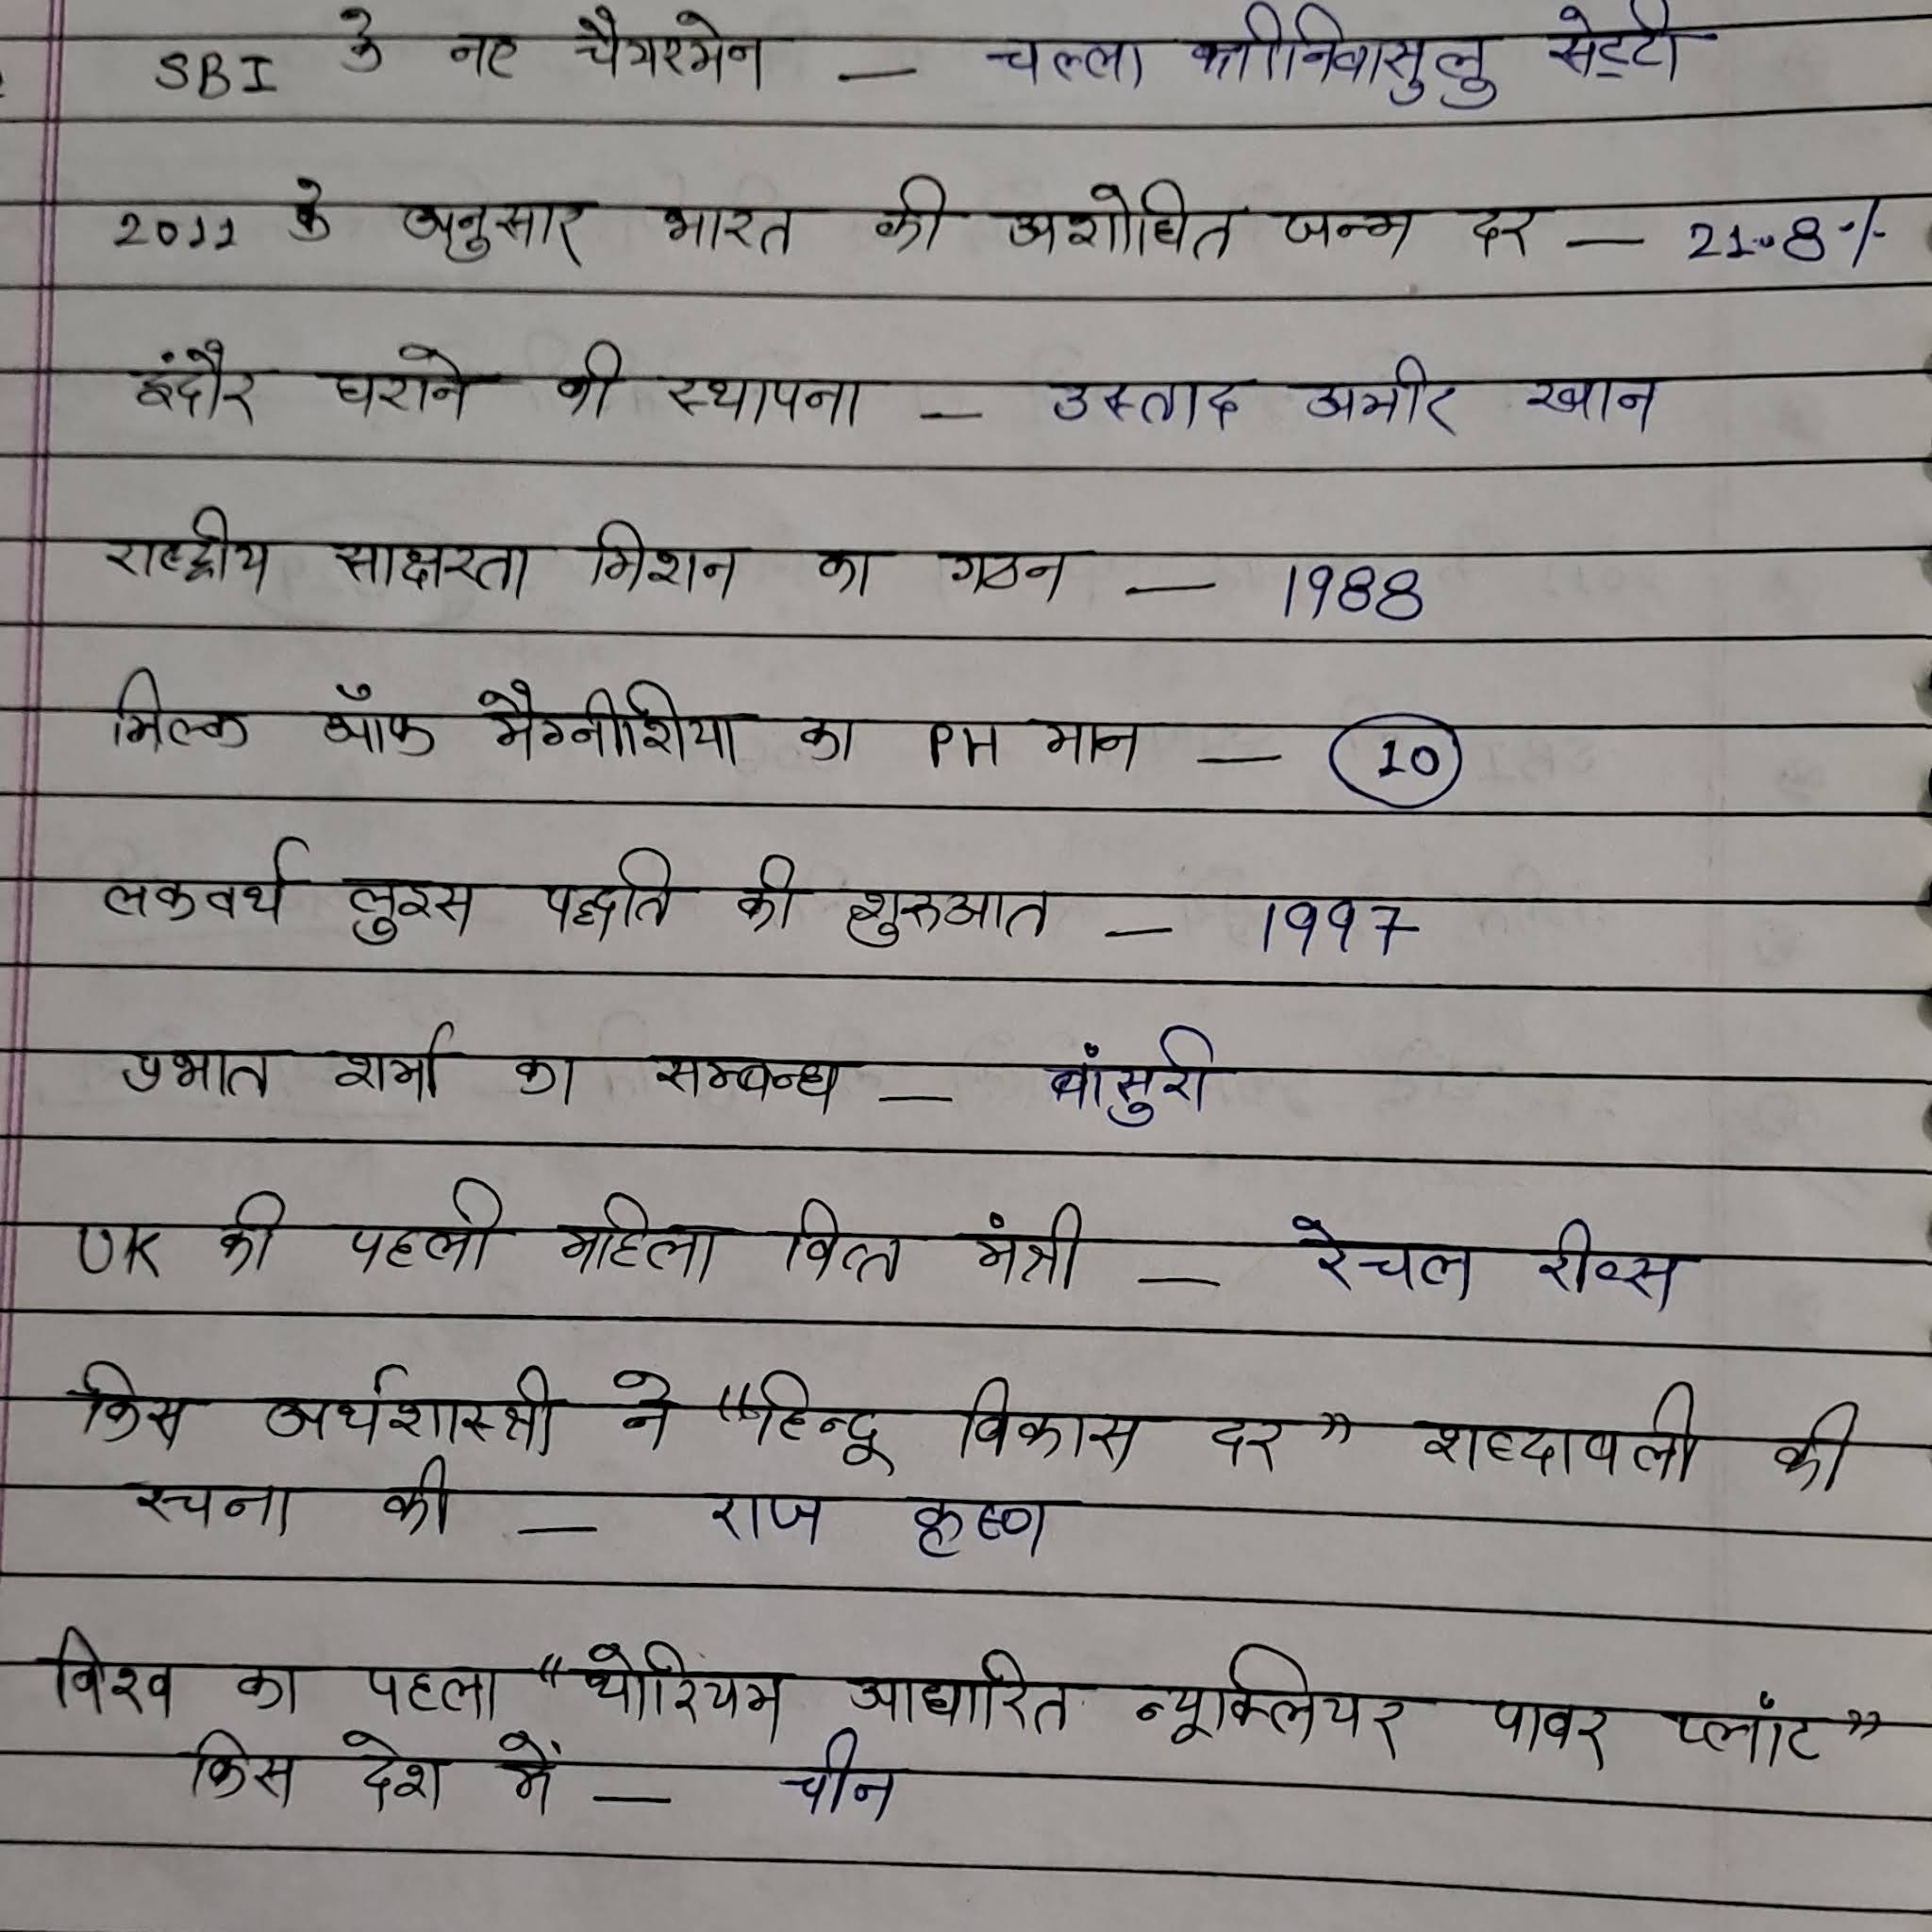 SBI के नए चैयरमेन — चल्ला श्रीनिवासुलु सेट्टी
2011 के अनुसार भारत की अशोधित जन्म दर — 21.8%
इंदौर घराने की स्थापना — उस्ताद अमीर खान
राष्ट्रीय साक्षरता मिशन का गठन — 1988
मिल्क ऑफ मैग्नीशिया का PH मान — 10
लकवर्थ लुइस पद्धति की शुरुआत — 1997
प्रभात शर्मा का सम्बन्ध — बाँसुरी
UK की पहली महिला वित्त मंत्री — रेचल रीव्स
किस अर्थशास्त्री ने "हिन्दू विकास दर" शब्दावली की
रचना की — राज कृष्ण
विश्व का पहला "थोरियम आधारित न्यूक्लियर पावर प्लांट"
किस देश में — चीन